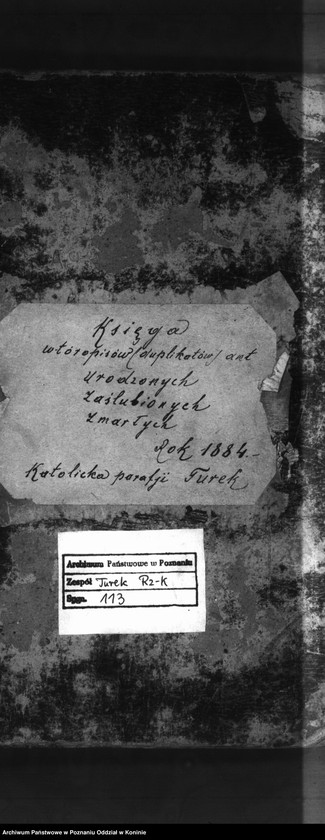 Księga
wtóropisów (duplikatów) akt
urodzonych
zaślubionych
zmarłych
Rok 1884.-
Katolicka parafji Turek
Archiwum Państwowe w Poznaniu
Zespół Turek Rz-K
Sygn. 113
Archiwum Państwowe w Poznaniu Oddział w Koninie